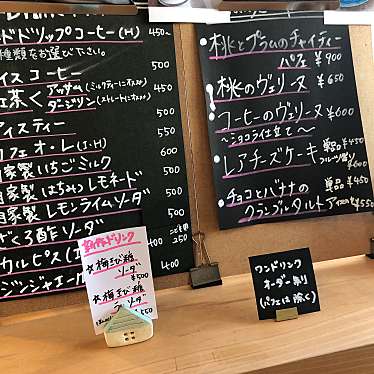 ドドリップコーヒー(H) 450~
種類をお選び下さい。
イスコーヒー 500
紅茶く アッサム(ミルクティーにオススメ)
ダージリン(ストレートにオススメ) 500
イスティー 500
カフェ・オ・レ(I・H) 600
自家製いちごミルク 500
自家製はちみつレモネード 500
自家製レモンライムソーダ 500
ざくろ酢ソーダ 500
カルピス 400
ジンジャエール 400
350
桃とプラムのチャイティー
パフェ ¥900
桃のヴェリーヌ ¥650
コーヒーのヴェリーヌ ¥600
〜ショコラ仕立て〜
レアチーズケーキ 単品¥450
フルーツ盛り ¥600
チョコとバナナの 単品¥450
クランブルタルト アイス ¥550
ドリンク
☆梅きび糖
ソーダ
¥500
☆梅きび糖
ソーダ
¥550
ワンドリンク
オーダー制
(パフェは除く)